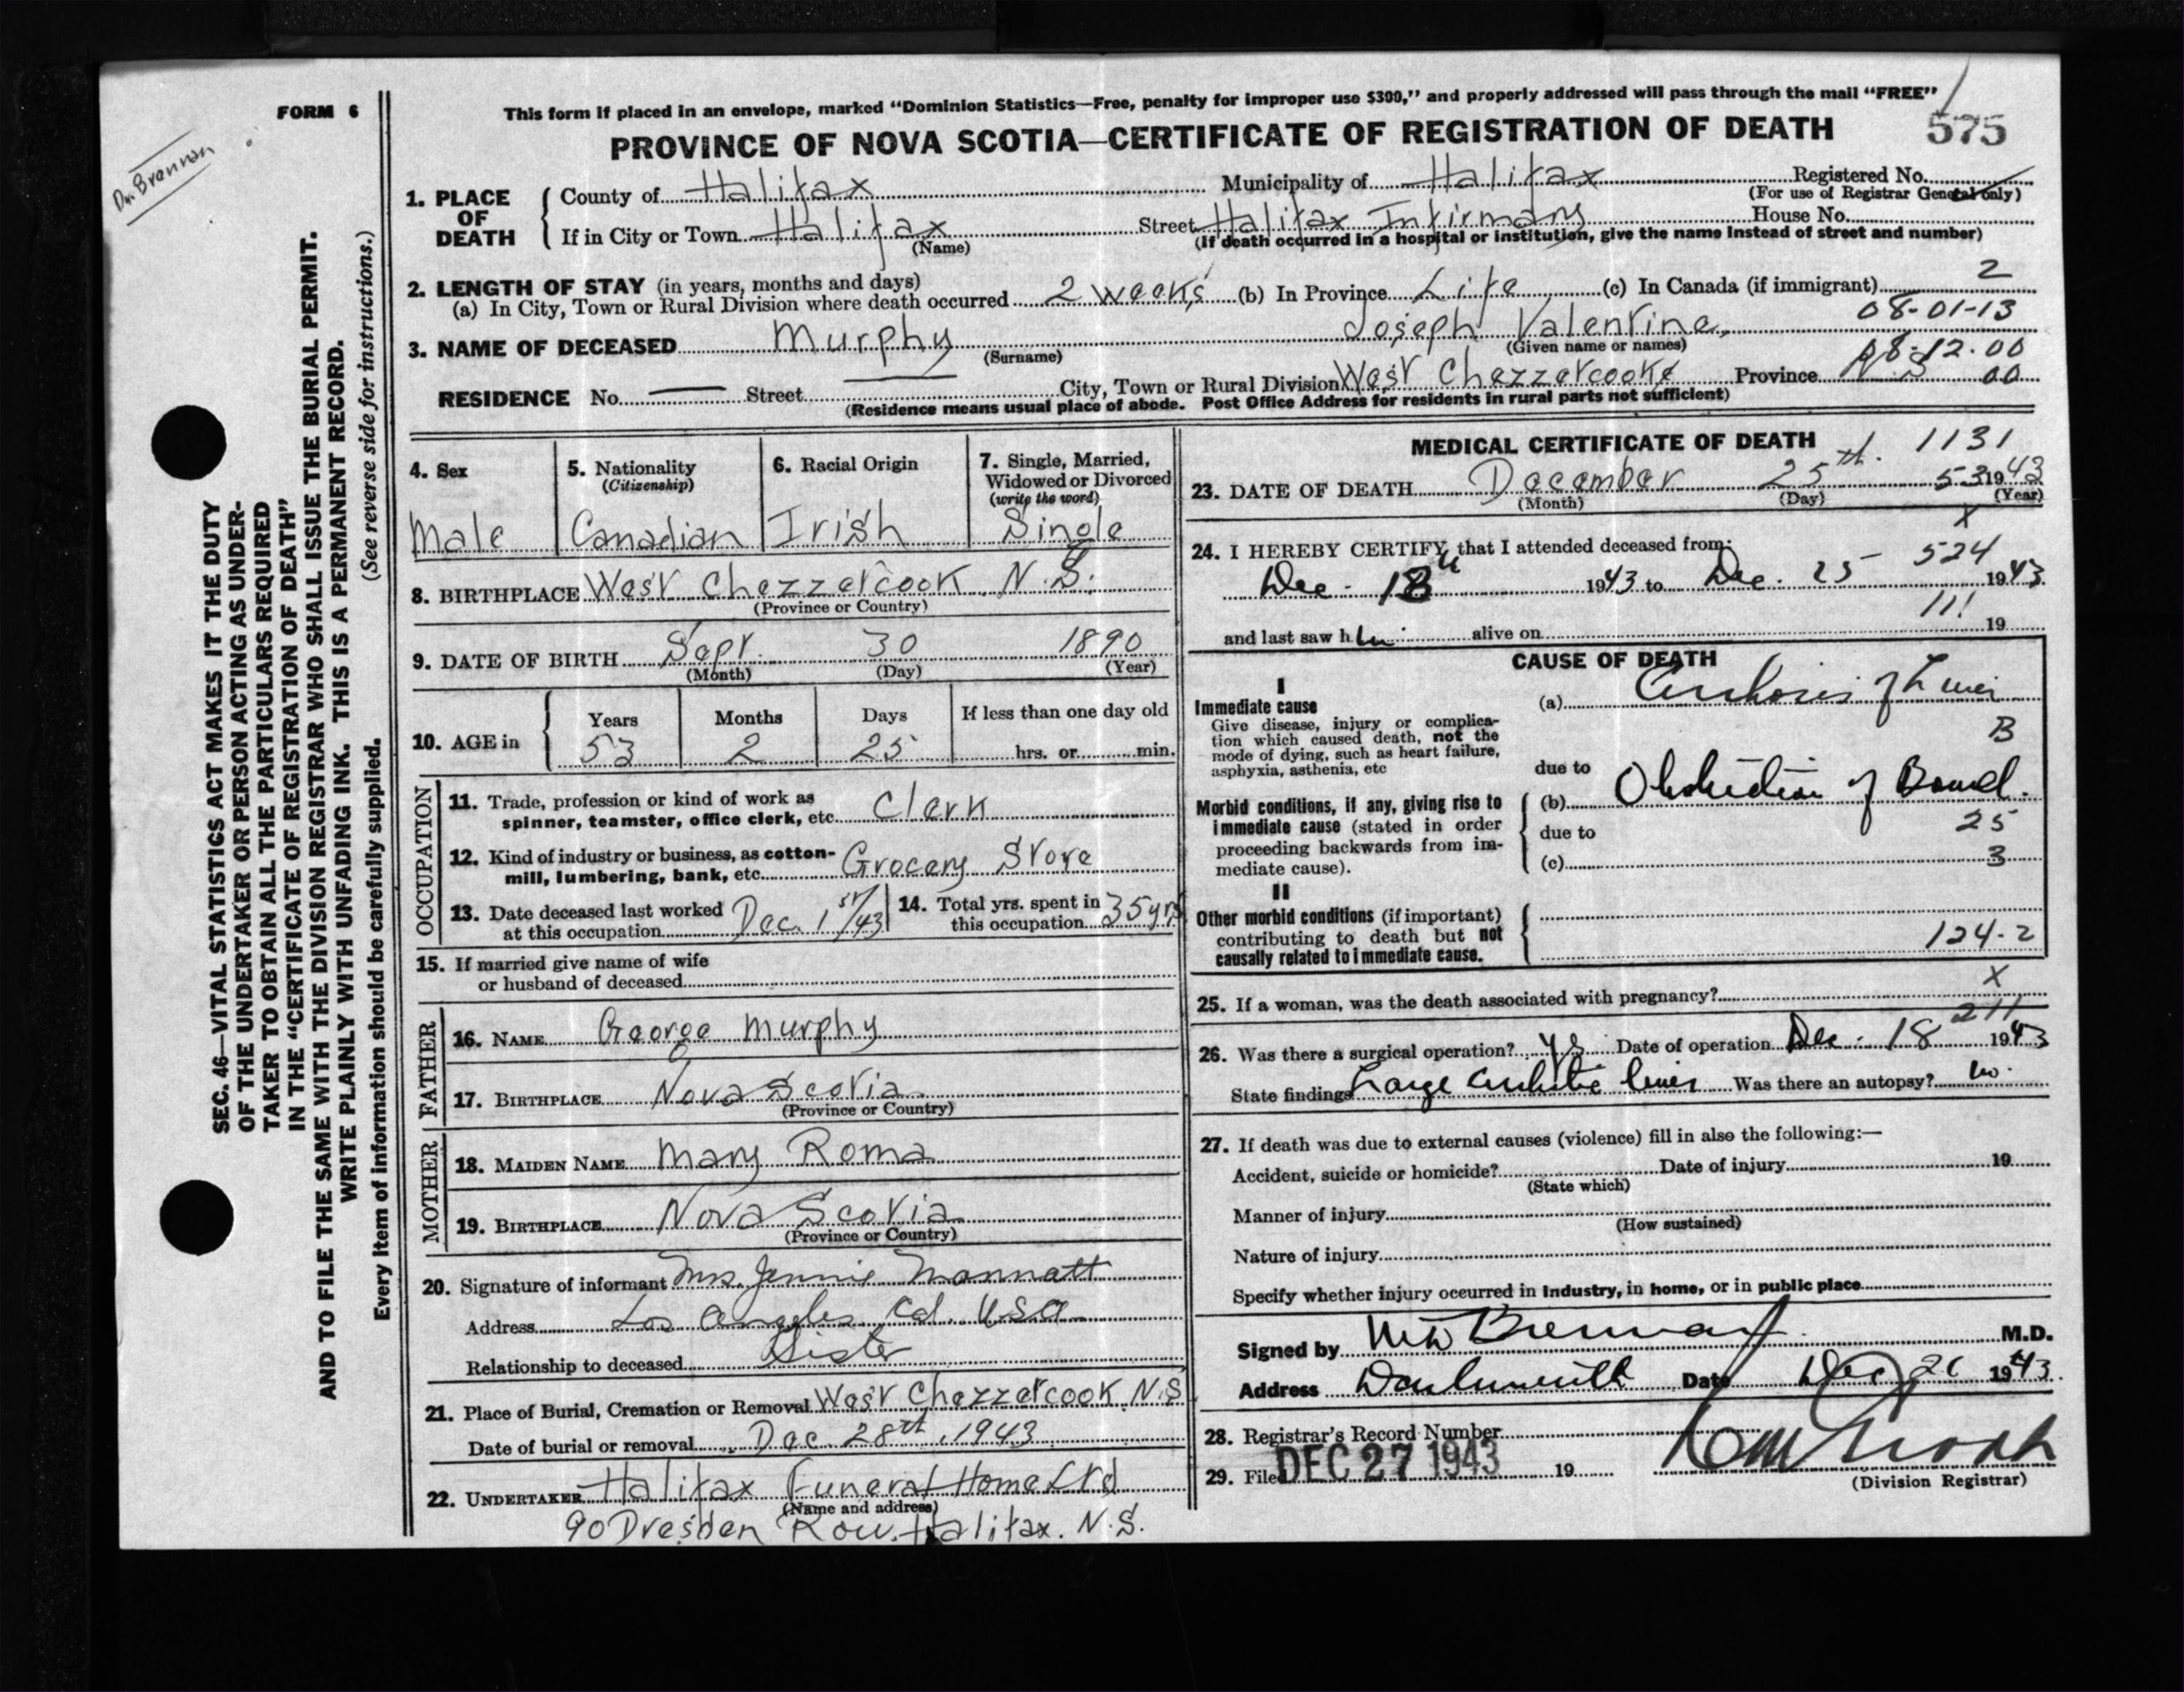 FORM 6
Dr. Brennan
This form if placed in an envelope, marked “Dominion Statistics—Free, penalty for improper use $300,” and properly addressed will pass through the mail “FREE”
PROVINCE OF NOVA SCOTIA—CERTIFICATE OF REGISTRATION OF DEATH
575
SEC. 46—VITAL STATISTICS ACT MAKES IT THE DUTY
OF THE UNDERTAKER OR PERSON ACTING AS UNDER-
TAKER TO OBTAIN ALL THE PARTICULARS REQUIRED
IN THE “CERTIFICATE OF REGISTRATION OF DEATH”
AND TO FILE THE SAME WITH THE DIVISION REGISTRAR WHO SHALL ISSUE THE BURIAL PERMIT.
WRITE PLAINLY WITH UNFADING INK. THIS IS A PERMANENT RECORD.
Every item of information should be carefully supplied. (See reverse side for instructions.)
1. PLACE OF DEATH
County of Halifax Municipality of Halifax Registered No.
(For use of Registrar General only)
If in City or Town Halifax Street Halifax Infirmary House No.
(Name) (If death occurred in a hospital or institution, give the name instead of street and number)
2. LENGTH OF STAY (in years, months and days)
(a) In City, Town or Rural Division where death occurred 2 weeks (b) In Province Life (c) In Canada (if immigrant) 2
08-01-13
3. NAME OF DECEASED Murphy Joseph Valentine
(Surname) (Given name or names)
08-12-00
RESIDENCE No. — Street — City, Town or Rural Division West Chezzetcooke Province N.S 00
(Residence means usual place of abode. Post Office Address for residents in rural parts not sufficient)
4. Sex
Male
5. Nationality
(Citizenship)
Canadian
6. Racial Origin
Irish
7. Single, Married,
Widowed or Divorced
(write the word)
Single
8. BIRTHPLACE West Chezzetcook N.S.
(Province or Country)
9. DATE OF BIRTH Sept. 30 1890
(Month) (Day) (Year)
10. AGE in
Years Months Days If less than one day old
53 2 25 hrs. or min.
OCCUPATION
11. Trade, profession or kind of work as
spinner, teamster, office clerk, etc. Clerk
12. Kind of industry or business, as cotton-
mill, lumbering, bank, etc. Grocery Store
13. Date deceased last worked
at this occupation Dec. 1st/43
14. Total yrs. spent in
this occupation 35 yrs
15. If married give name of wife
or husband of deceased
FATHER
16. NAME George Murphy
17. BIRTHPLACE Nova Scotia
(Province or Country)
MOTHER
18. MAIDEN NAME Mary Roma
19. BIRTHPLACE Nova Scotia
(Province or Country)
20. Signature of informant Mrs. Jennie Mannatt
Address Los Angeles Cal. USA
Relationship to deceased Sister
21. Place of Burial, Cremation or Removal West Chezzetcook N.S
Date of burial or removal Dec 28th, 1943
22. UNDERTAKER Halifax Funeral Home Ltd
(Name and address)
90 Dresden Row, Halifax. N.S.
MEDICAL CERTIFICATE OF DEATH
1131
23. DATE OF DEATH December 25th. 53 1943
(Month) (Day) (Year)
X
24. I HEREBY CERTIFY that I attended deceased from:
524
Dec - 18 1943 to Dec. 25 1943
111
and last saw him alive on 19
CAUSE OF DEATH
I
Immediate cause
Give disease, injury or complica-
tion which caused death, not the
mode of dying, such as heart failure,
asphyxia, asthenia, etc
(a) Cirrhosis of Liver
B
due to
Morbid conditions, if any, giving rise to
immediate cause (stated in order
proceeding backwards from im-
mediate cause).
(b) Obstruction of Bowel.
25
due to
(c) 3
II
Other morbid conditions (if important)
contributing to death but not
causally related to immediate cause.
124-2
X
25. If a woman, was the death associated with pregnancy?
211
26. Was there a surgical operation? Yes Date of operation Dec - 18 1943
State findings Large Cirrhotic liver Was there an autopsy? no.
27. If death was due to external causes (violence) fill in also the following:—
Accident, suicide or homicide? Date of injury 19
(State which)
Manner of injury
(How sustained)
Nature of injury
Specify whether injury occurred in Industry, in home, or in public place
Signed by Brennan M.D.
Address Dartmouth Date Dec 26 1943.
28. Registrar's Record Number
29. Filed DEC 27 1943 19
(Division Registrar)